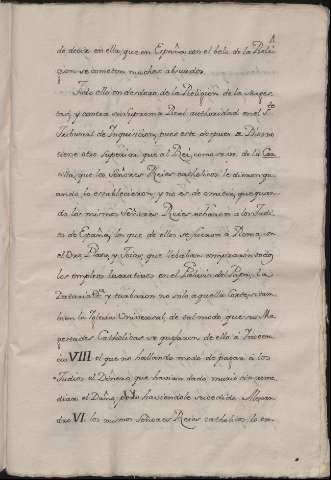 de decir en ella, que en España con el velo de la Reli
gion se cometen muchos absurdos.
Todo ello en desdoro de la Religion de la Mages-
tad, y contra su Suprema Real authoridad en el Sto
Tribunal de Inquisicion, pues este después a Dios no
tiene otro superior que al Rei, como se ve de la
, que los Señores Reies catholicos le dieron qu-
ando lo establecieron, y no es de omitir, que quan-
do los mismos Señores Reies echaron a los Judi-
os de España, los que de ellos se fueron a Roma, con
el Oro, Plata, y Joias, que llebaban compraron todos
los empleos lucrativos en el Palacio del Papa, la
Dataria &a y turbaron no solo aquella Corte, si tam
bien la Iglesia Universal, de tal modo que sus Ma
gestades Catholicas se quejaron de ello á Inocen
cio VIII el que no hallando modo de pagar á los
Judios el Dinero, que havian dado, murió sin reme
diar el Daño, haviendole sucedido Alexan
dro VI. los mismos Señores Reies catholicos, lo en-